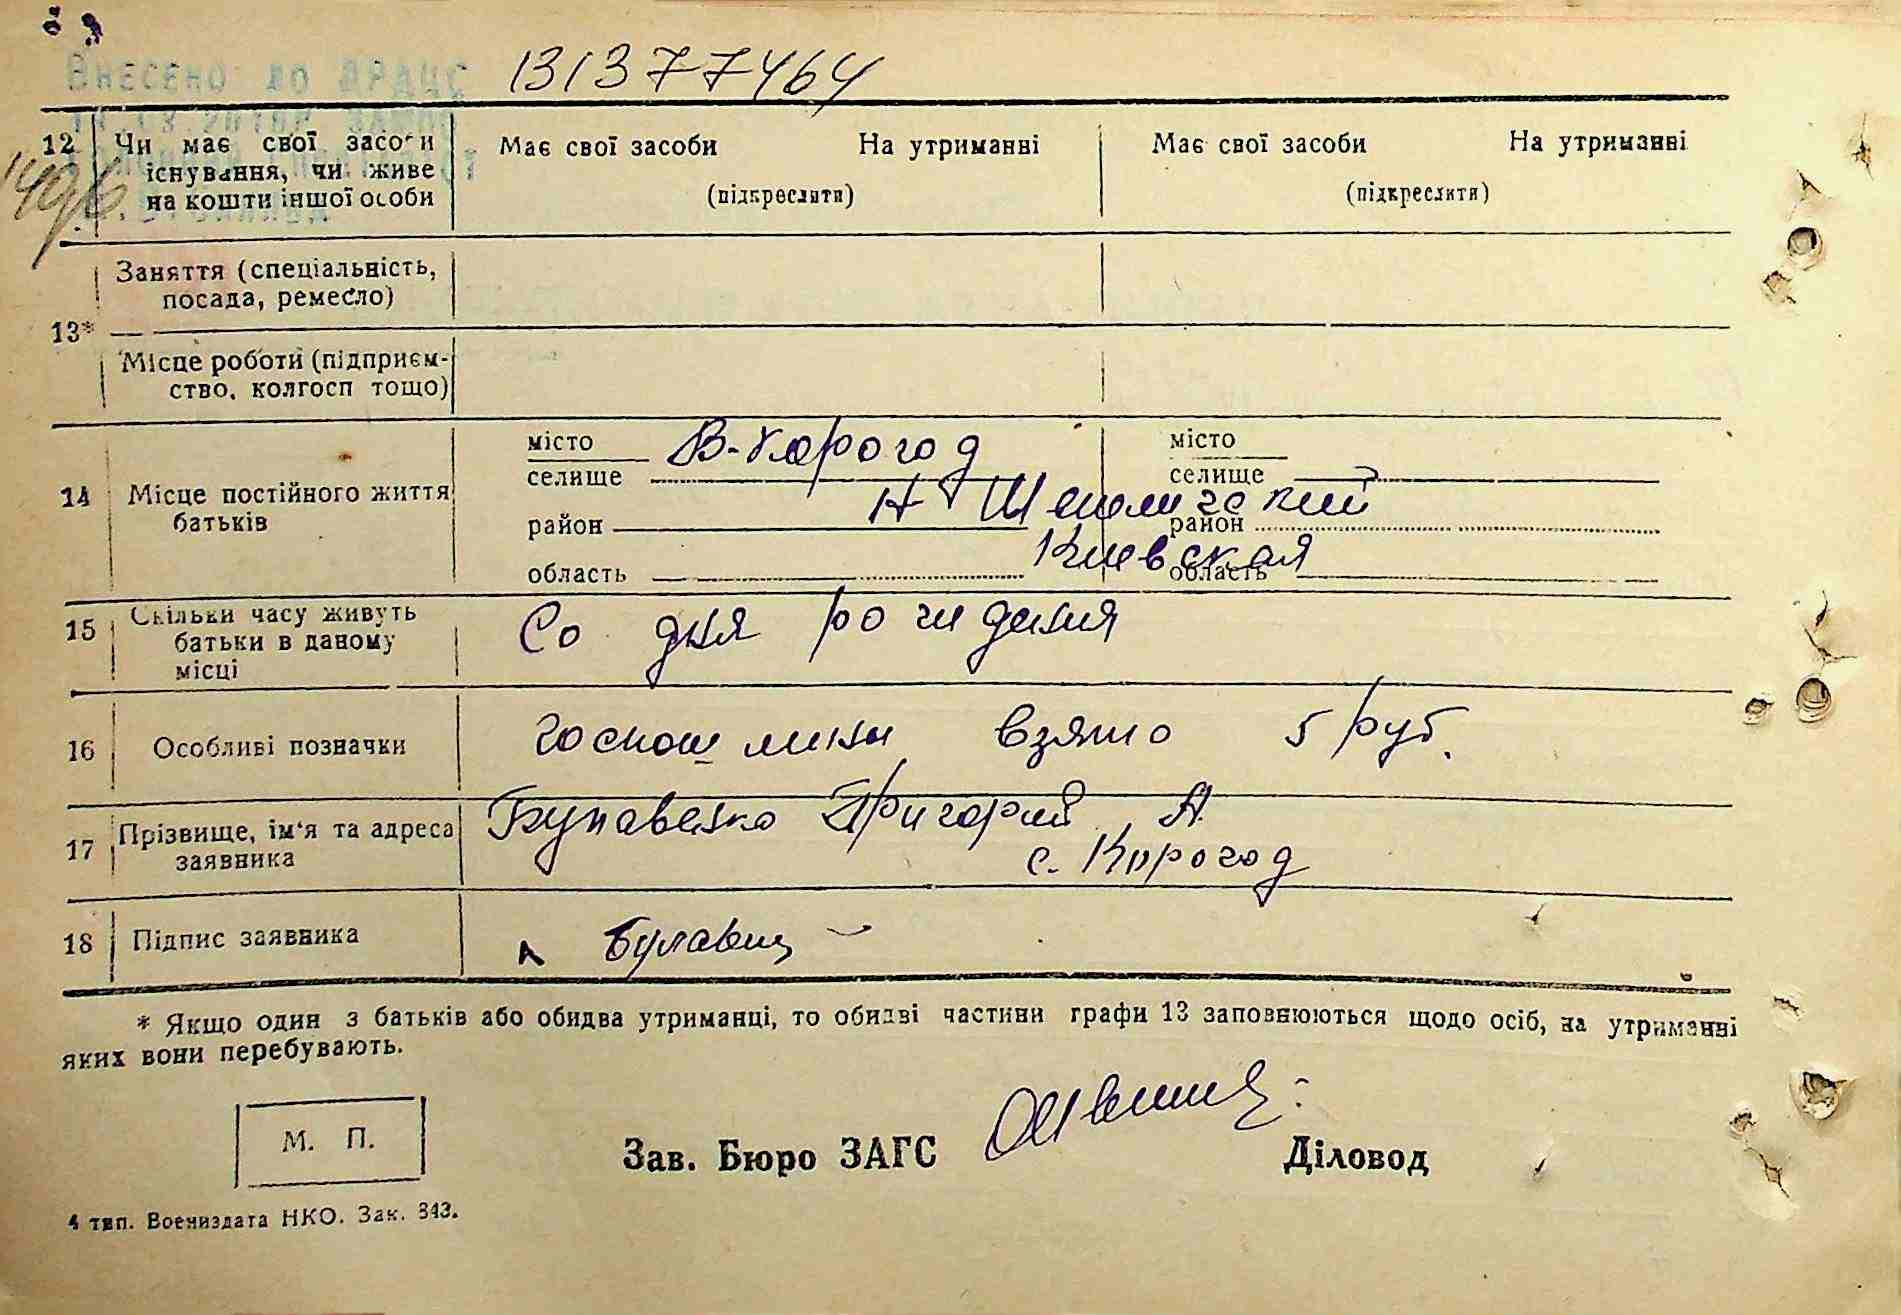 Внесено до ДРАЦС
131377464
1496
12 Чи має свої засоби існування, чи живе на кошти іншої особи
Має свої засоби На утриманні
(підкреслити)
Має свої засоби На утриманні
(підкреслити)
13*
Заняття (спеціальність, посада, ремесло)
Місце роботи (підприєм-
ство, колгосп тощо)
14 Місце постійного життя батьків
місто
селище
В-Корогод
район
Н Шепелический
область
Киевская
місто
селище
район
область
15 Скільки часу живуть батьки в даному місці
Со дня рождения
16 Особливі позначки
госпошлины взято 5 руб.
17 Прізвище, ім'я та адреса заявника
Булавенко Григорий А.
с. Корогод
18 Підпис заявника
* Якщо один з батьків або обидва утриманці, то обидві частини графи 13 заповнюються щодо осіб, на утриманні
яких вони перебувають.
М. П.
Зав. Бюро ЗАГС
Діловод
4 тип. Воениздата НКО. Зак. 343.